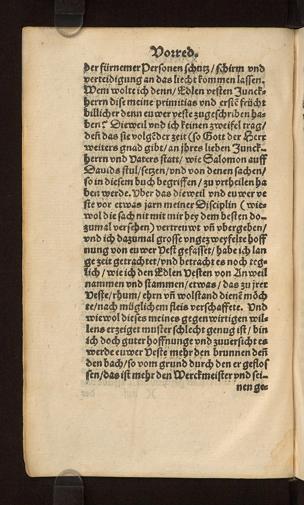 Vorred.
der fürnemer Personen schutz / schirm vnd
verteidigung an das liecht kommen lassen.
Wem wolte ich denn / Edlen vesten Junck-
herrn dise meine primitias vnd erste frücht
billicher denn euwer veste zugeschriben ha-
ben? Dieweil vnd ich keinen zweifel trag /
deß das sie volgder zeit (so Gott der Herr
weiters gnad gibt / an jhres lieben Junck-
herrn vnd Vaters statt / wie Salomon auff
Dauids stul / setzen / vnd von denen sachen /
so in disem buch begriffen / zu vrtheilen ha
ben werde. Vber das dieweil vnd euwer ve
ste vor etwas jarn meiner Disciplin (wie-
wol die sach nit mit mir bey dem besten do-
zumal versehen) vertreuwt vñ vbergeben /
vnd ich dazumal grosse vngezweyfelte hoff
nung von euwer Vest gefasset / habe ich lan
ge zeit getrachtet / vnd betracht es noch teg-
lich / wie ich den Edlen Vesten von Anweil
nammen vnd stammen / etwas / das zu jrer
Veste / rhum / ehrn vñ wolstand dienẽ möch
te / nach müglichem fleis verschaffete. Vnd
wiewol dieses meines gegenwirtigen wil-
lens erzeiget muster schlecht genug ist / bin
ich doch guter hoffnunge vnd zuuersicht es
werde euwer Veste mehr den brunnen deñ
den bach / so vom grund durch den er geflos
sen / das ist mehr den Werckmeister vnd sei-
nen ge-